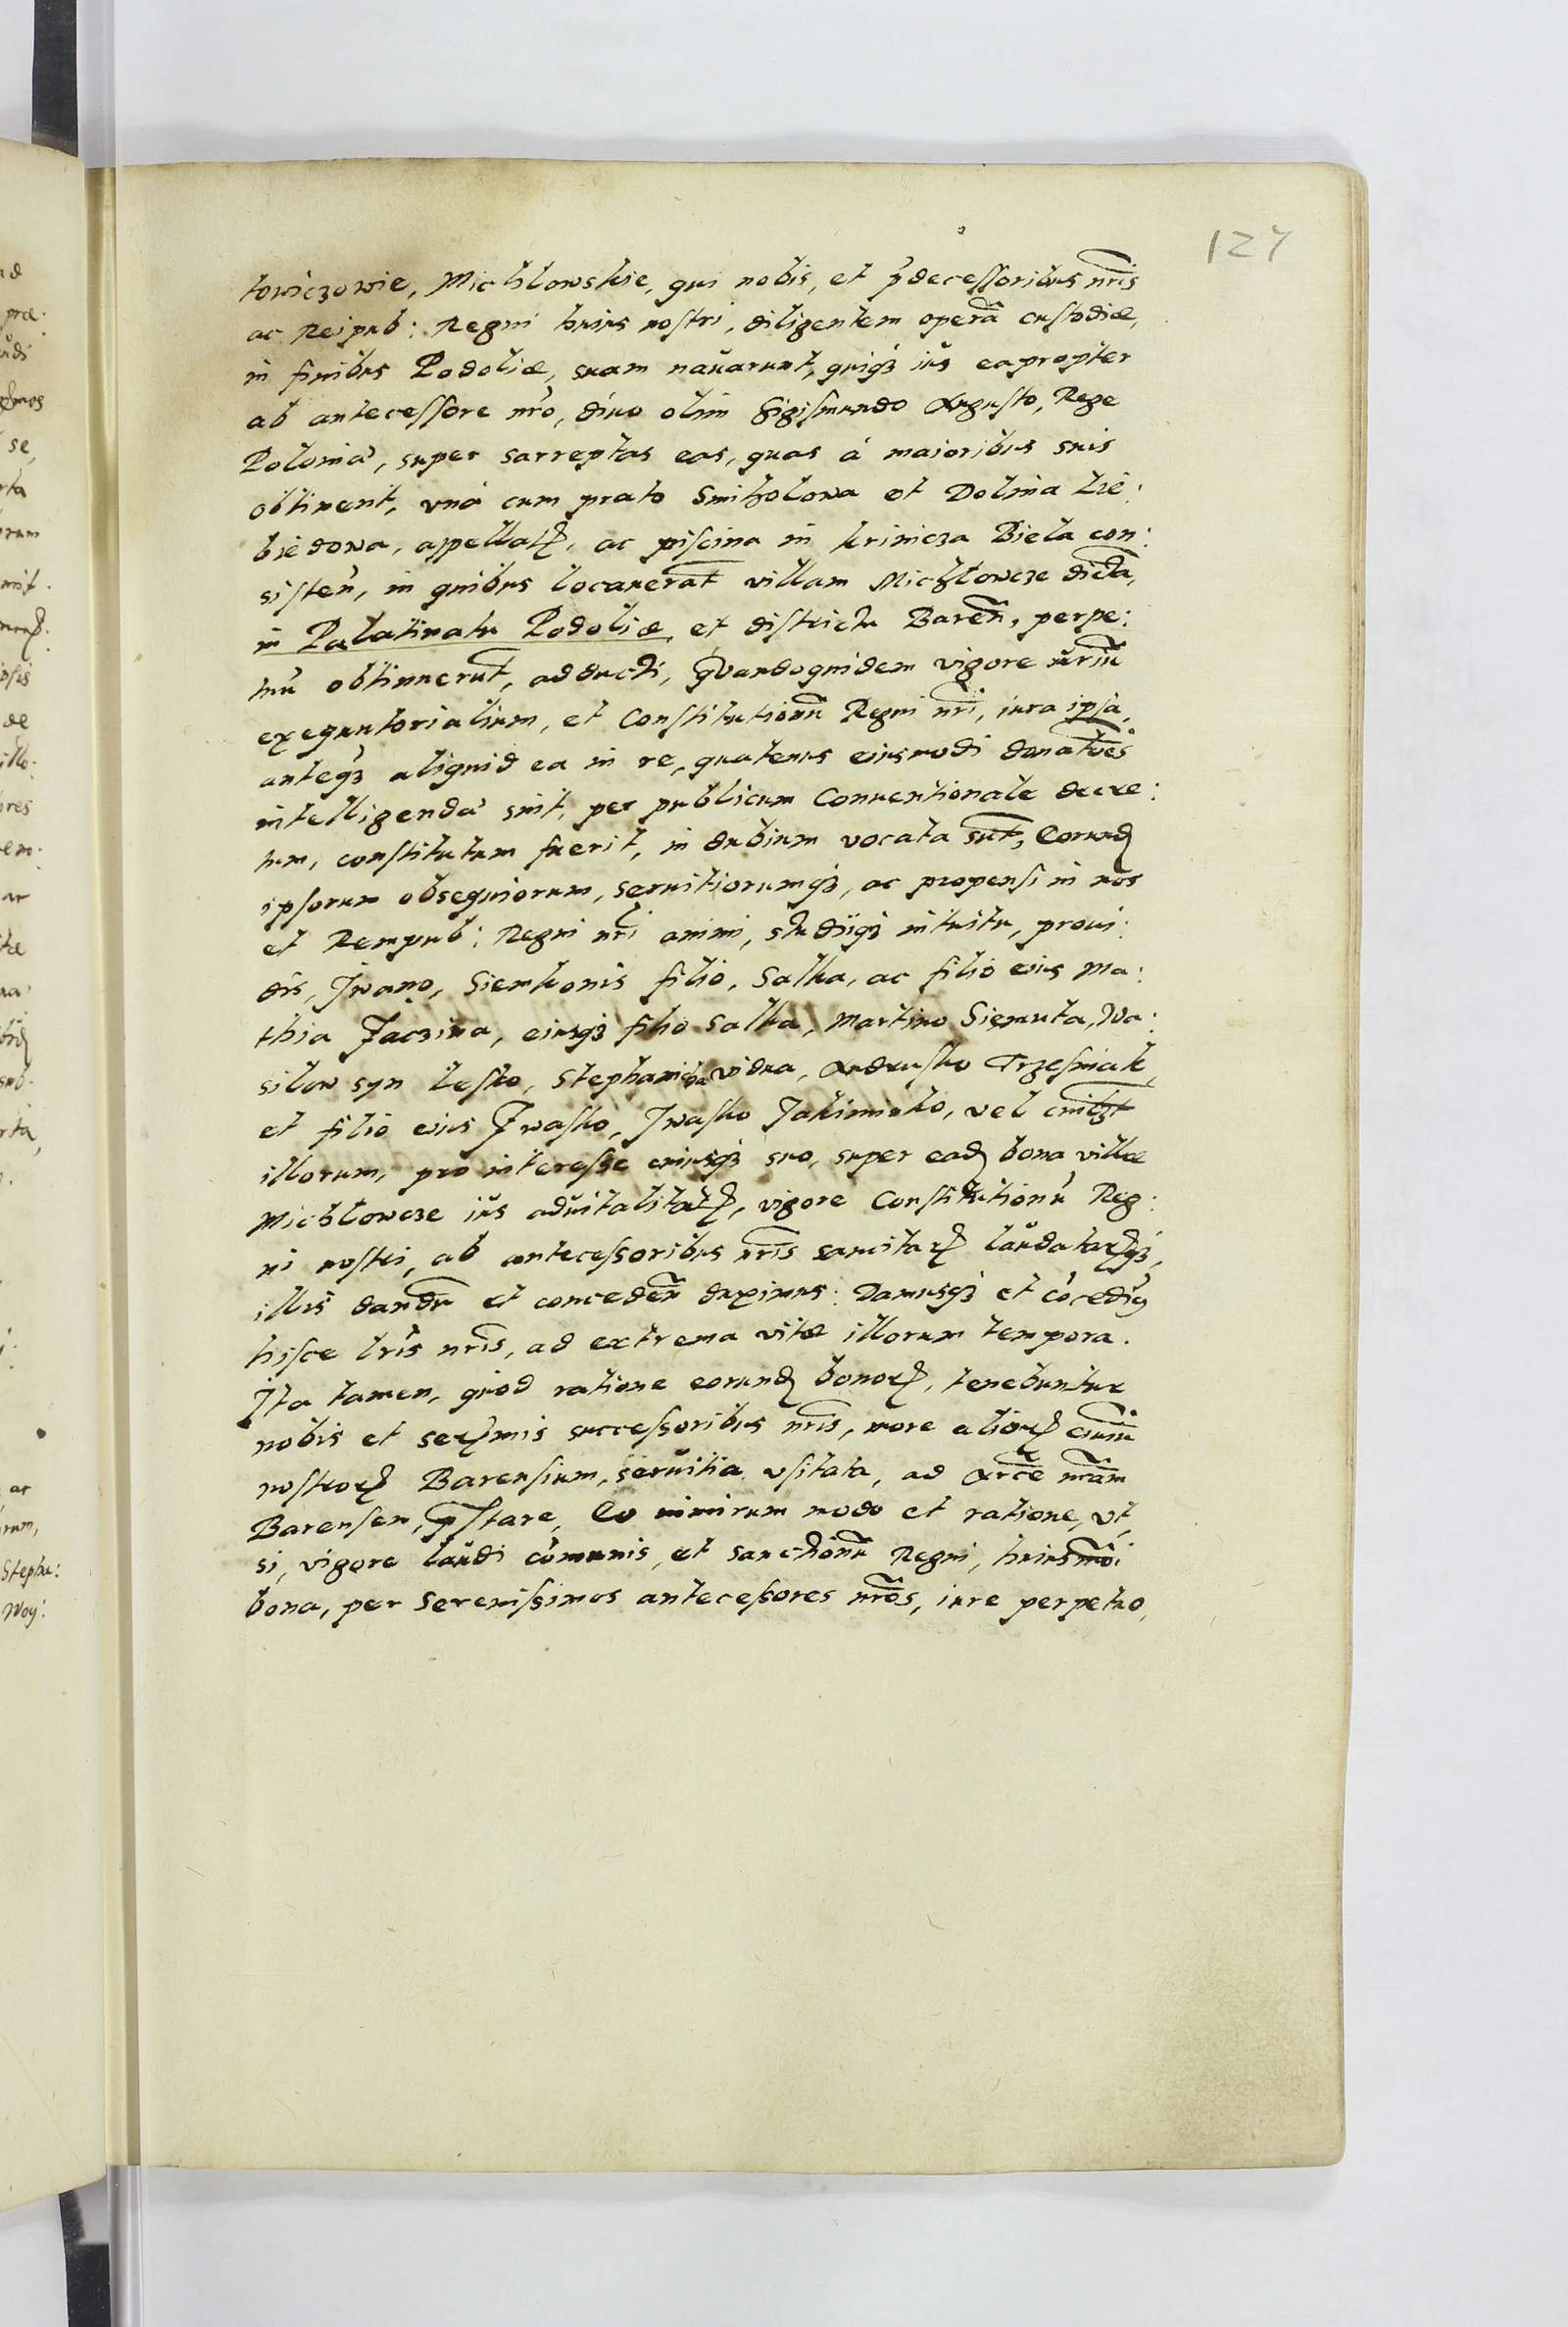 127
towiczowie, Michlowskie, qui nobis, et p̃decessoribus nr̃is
ac Reipub: Regni huius nostri, diligentem operã custodiæ,
in finibus Podoliæ, suam nauarunt, quiq3 ius eapropter
ab antecessore nr̃o, diuo olim Sigismundo Augusto, Rege
Polonia, super sarreptas eas, quas á maioribus suis
obtinent, vná cum prato Smitzolowa et Dolina Lie:
biedowa, appellatꝝ, ac piscina in krinicza Biela con:
sisteñ, in quibus locauerãt villam Michlowcze dictã,
in Palatinatu Podoliæ, et districtu Bareñ, perpe:
tuũ obtinuerũt, adducti, Quandoquidem vigore nr̃iũ
exequutorialium, et Constitutionũ Regni nr̃i, iura ipsa,
anteq3 aliquid ea in re, quatenus eiusmodi donatiões
intelligenda sint, per publicum Conuentionale decre:
tum, constitutum fuerit, in dubium vocata sũt, Eorund
ipsorum obsequiorum, seruitiorumq3, ac propensi in nos
et Rempub: Regni nr̃i animi, studiiq3 intuitu, proui:
dis, Iwano, Siemkonis filio, Salka, ac filio eius Ma:
thia Jaczina, eiusq3 filio Salka, Martino Siemuta, Wa:
silow syn Lesko, Stephanicha vidua, Andrusko Trzesniak,
et filio eius Iwasko, Iwasko Jakimicko, vel cuilꝫt
illorum, pro interesse cuiusq3 suo, super ead bona villæ
Michlowcze ius aduitalitatꝝ, vigore Constitutionũ Reg:
ni nostri, ab antecessoribus nr̃is sancitaꝝ laudataꝝq3,
illis dandũ et concedeñ duximus: Damusq3 et cõcedim9
hisce lr̃is nr̃is, ad extrema vitæ illorum tempora.
Ita tamen, quod ratione eorund bonoꝝ, tenebuntur
nobis et serꝫmis successoribus nr̃is, more alioꝝ ciuiũ
nostroꝝ Barensium, seruitia vsitata, ad Arcẽ nr̃am
Barensem, p̃stare, Eo nimirum modo et ratione, vt,
si, vigore laudi cõmunis, et sanctionũ Regni, huiusmõi
bona, per Serenissimos antecessores nr̃os, iure perpetuo,